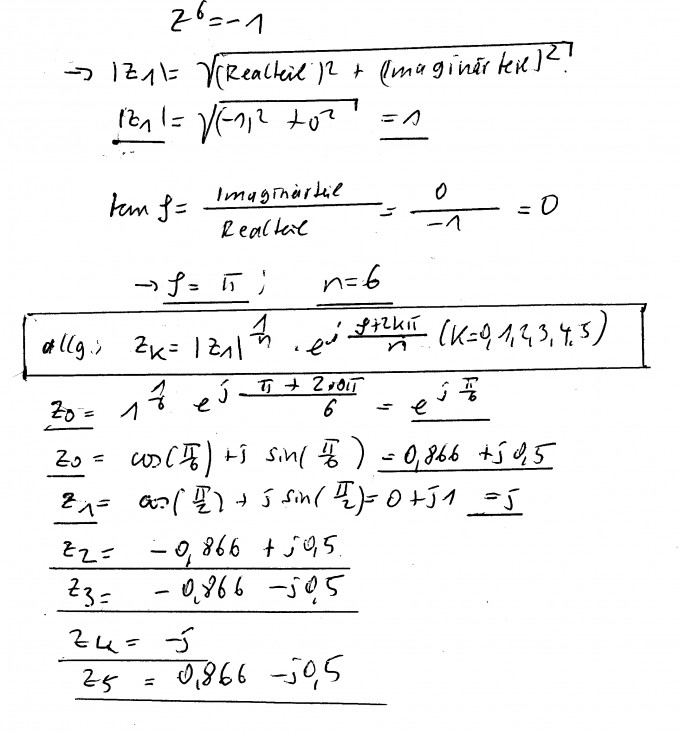 z⁶ = -1
→ |z₁| = √((Realteil)² + (Imaginärteil)²)
|z₁| = √((-1)² + 0²) = 1
tan φ = Imaginärteil / Realteil = 0 / -1 = 0
→ φ = π ; n = 6
allg.: z_K = |z₁|^(1/n) · e^(j (φ+2kπ)/n) (K=0,1,2,3,4,5)
z₀ = 1^(1/6) e^(j (π + 2·0π)/6) = e^(j π/6)
z₀ = cos(π/6) + j sin(π/6) = 0,866 + j 0,5
z₁ = cos(π/2) + j sin(π/2) = 0 + j1 = j
z₂ = - 0,866 + j0,5
z₃ = - 0,866 - j0,5
z₄ = -j
z₅ = 0,866 - j0,5